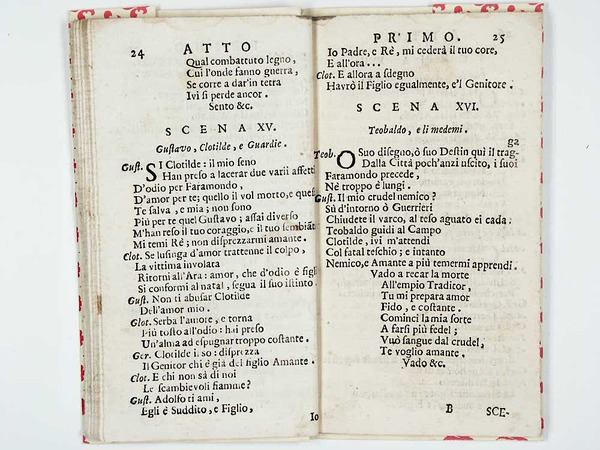 24 ATTO
Qual combattuto legno,
Cui l'onde fanno guerra,
Se corre a dar'in terra
Ivi si perde ancor.
Sento &c.
SCENA XV.
Gustavo, Clotilde, e Guardie.
Gust. SI Clotilde: il mio seno
Han preso a lacerar due varii affetti
D'odio per Faramondo,
D'amor per te; quello il vol morto, e ques
Te salva, e mia; non sono
Più per te quel Gustavo; assai diverso
M'han reso il tuo coraggio, e il tuo sembiãt
Mi temi Rè; non disprezzarmi amante.
Clot. Se lusinga d'amor trattenne il colpo,
La vittima involata
Ritorni all'Ara: amor, che d'odio è figl
Si conformi al natal, segua il suo istinto.
Gust. Non ti abusar Clotilde
Dell'amor mio.
Clot. Serba l'amore, e torna
Più tosto all'odio: hai preso
Un'alma ad espugnar troppo costante.
Ger. Clotilde il so: disprezza
Il Genitor chi è già del figlio Amante.
Clot. E chi non sà di noi
Le scambievoli fiamme?
Gust. Adolfo ti ami,
Egli è Suddito, e Figlio,
Io
PRIMO. 25
Io Padre, e Rè, mi cederà il tuo core,
E all'ora...
Clot. E allora a sdegno
Havrò il Figlio egualmente, e'l Genitore.
SCENA XVI.
Teobaldo, e li medemi.
ga
Teob. O Suo disegno, ò suo Destin quì il trag-
Dalla Città poch'anzi uscito, i suoi
Faramondo precede,
Nè troppo è lungi.
Gust. Il mio crudel nemico?
Sù d'intorno ò Guerrieri
Chiudete il varco, al teso aguato ei cada.
Teobaldo guidi al Campo
Clotilde, ivi m'attendi
Col fatal teschio; e intanto
Nemico, e Amante a più temermi apprendi.
Vado a recar la morte
All'empio Traditor,
Tu mi prepara amor
Fido, e costante.
Cominci la mia sorte
A farsi più fedel;
Vuò sangue dal crudel,
Te voglio amante.
Vado &c.
B SCE-